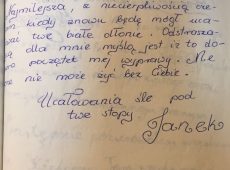 Najmilejsza, z niecierpliwością cze-
kiedy znowu będę mógł uca-
twe białe dłonie. Odstrasza-
dla mnie myślą jest iż to do-
początek mej wyprawy. Nie
nie może żyć bez Ciebie.
Ucałowania śle pod
twe stopy
Janek